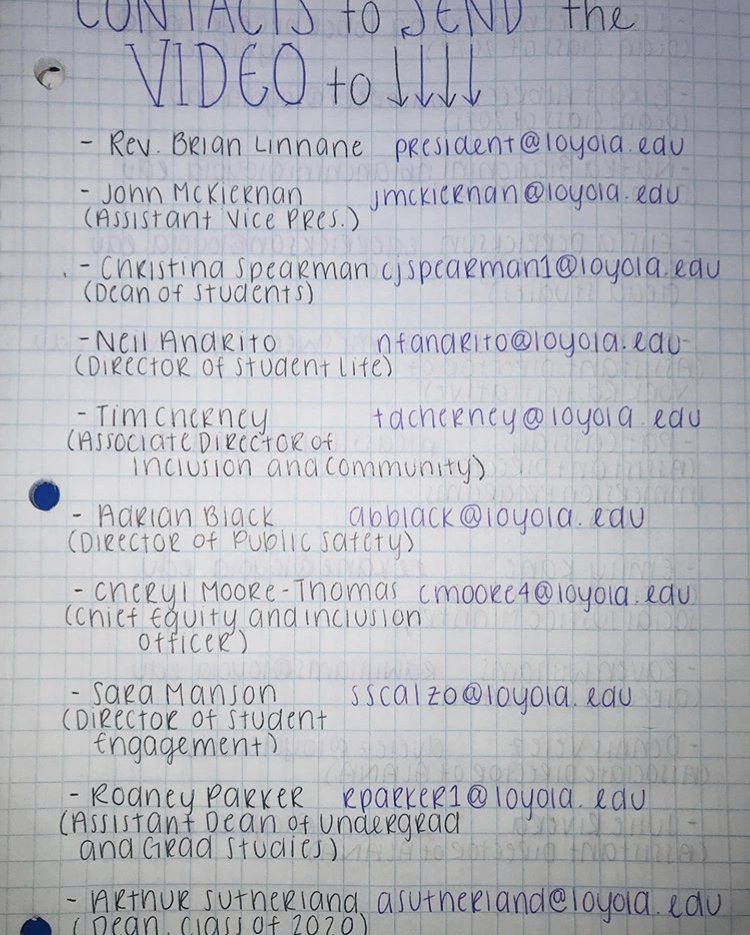 CONTACTS to SEND the
VIDEO to ↓↓↓↓
- Rev. Brian Linnane president@loyola.edu
- John McKiernan jmckiernan@loyola.edu
(Assistant Vice Pres.)
- Christina Spearman cjspearman1@loyola.edu
(Dean of Students)
- Neil Andrito nfandrito@loyola.edu
(Director of Student Life)
- Tim Cherney tdcherney@loyola.edu
(Associate Director of
Inclusion and Community)
- Adrian Black abblack@loyola.edu
(Director of Public Safety)
- Cheryl Moore-Thomas cmoore4@loyola.edu
(Chief Equity and Inclusion
Officer)
- Sara Manson sscalzo@loyola.edu
(Director of Student
Engagement)
- Rodney Parker rparker1@loyola.edu
(Assistant Dean of Undergrad
and Grad Studies)
- Arthur Sutherland asutherland@loyola.edu
(Dean, Class of 2020)